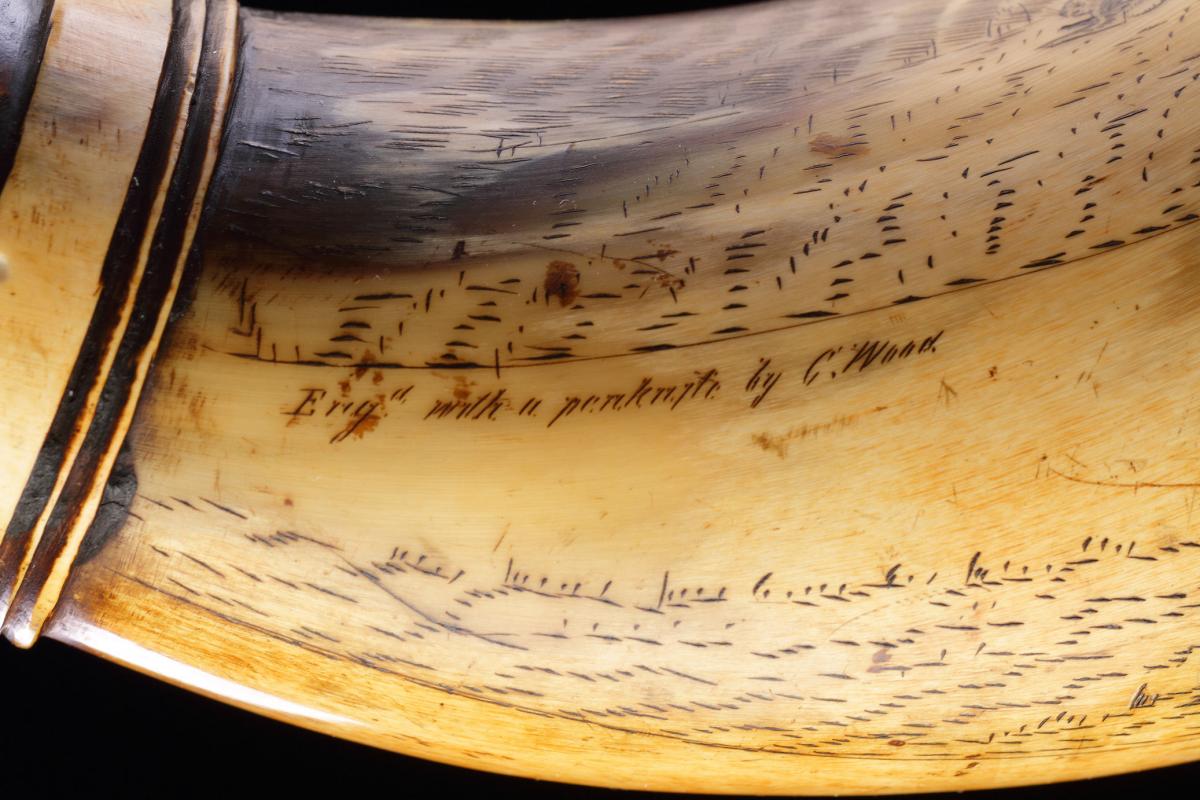 Eng.d with a penknife by C. Wood.